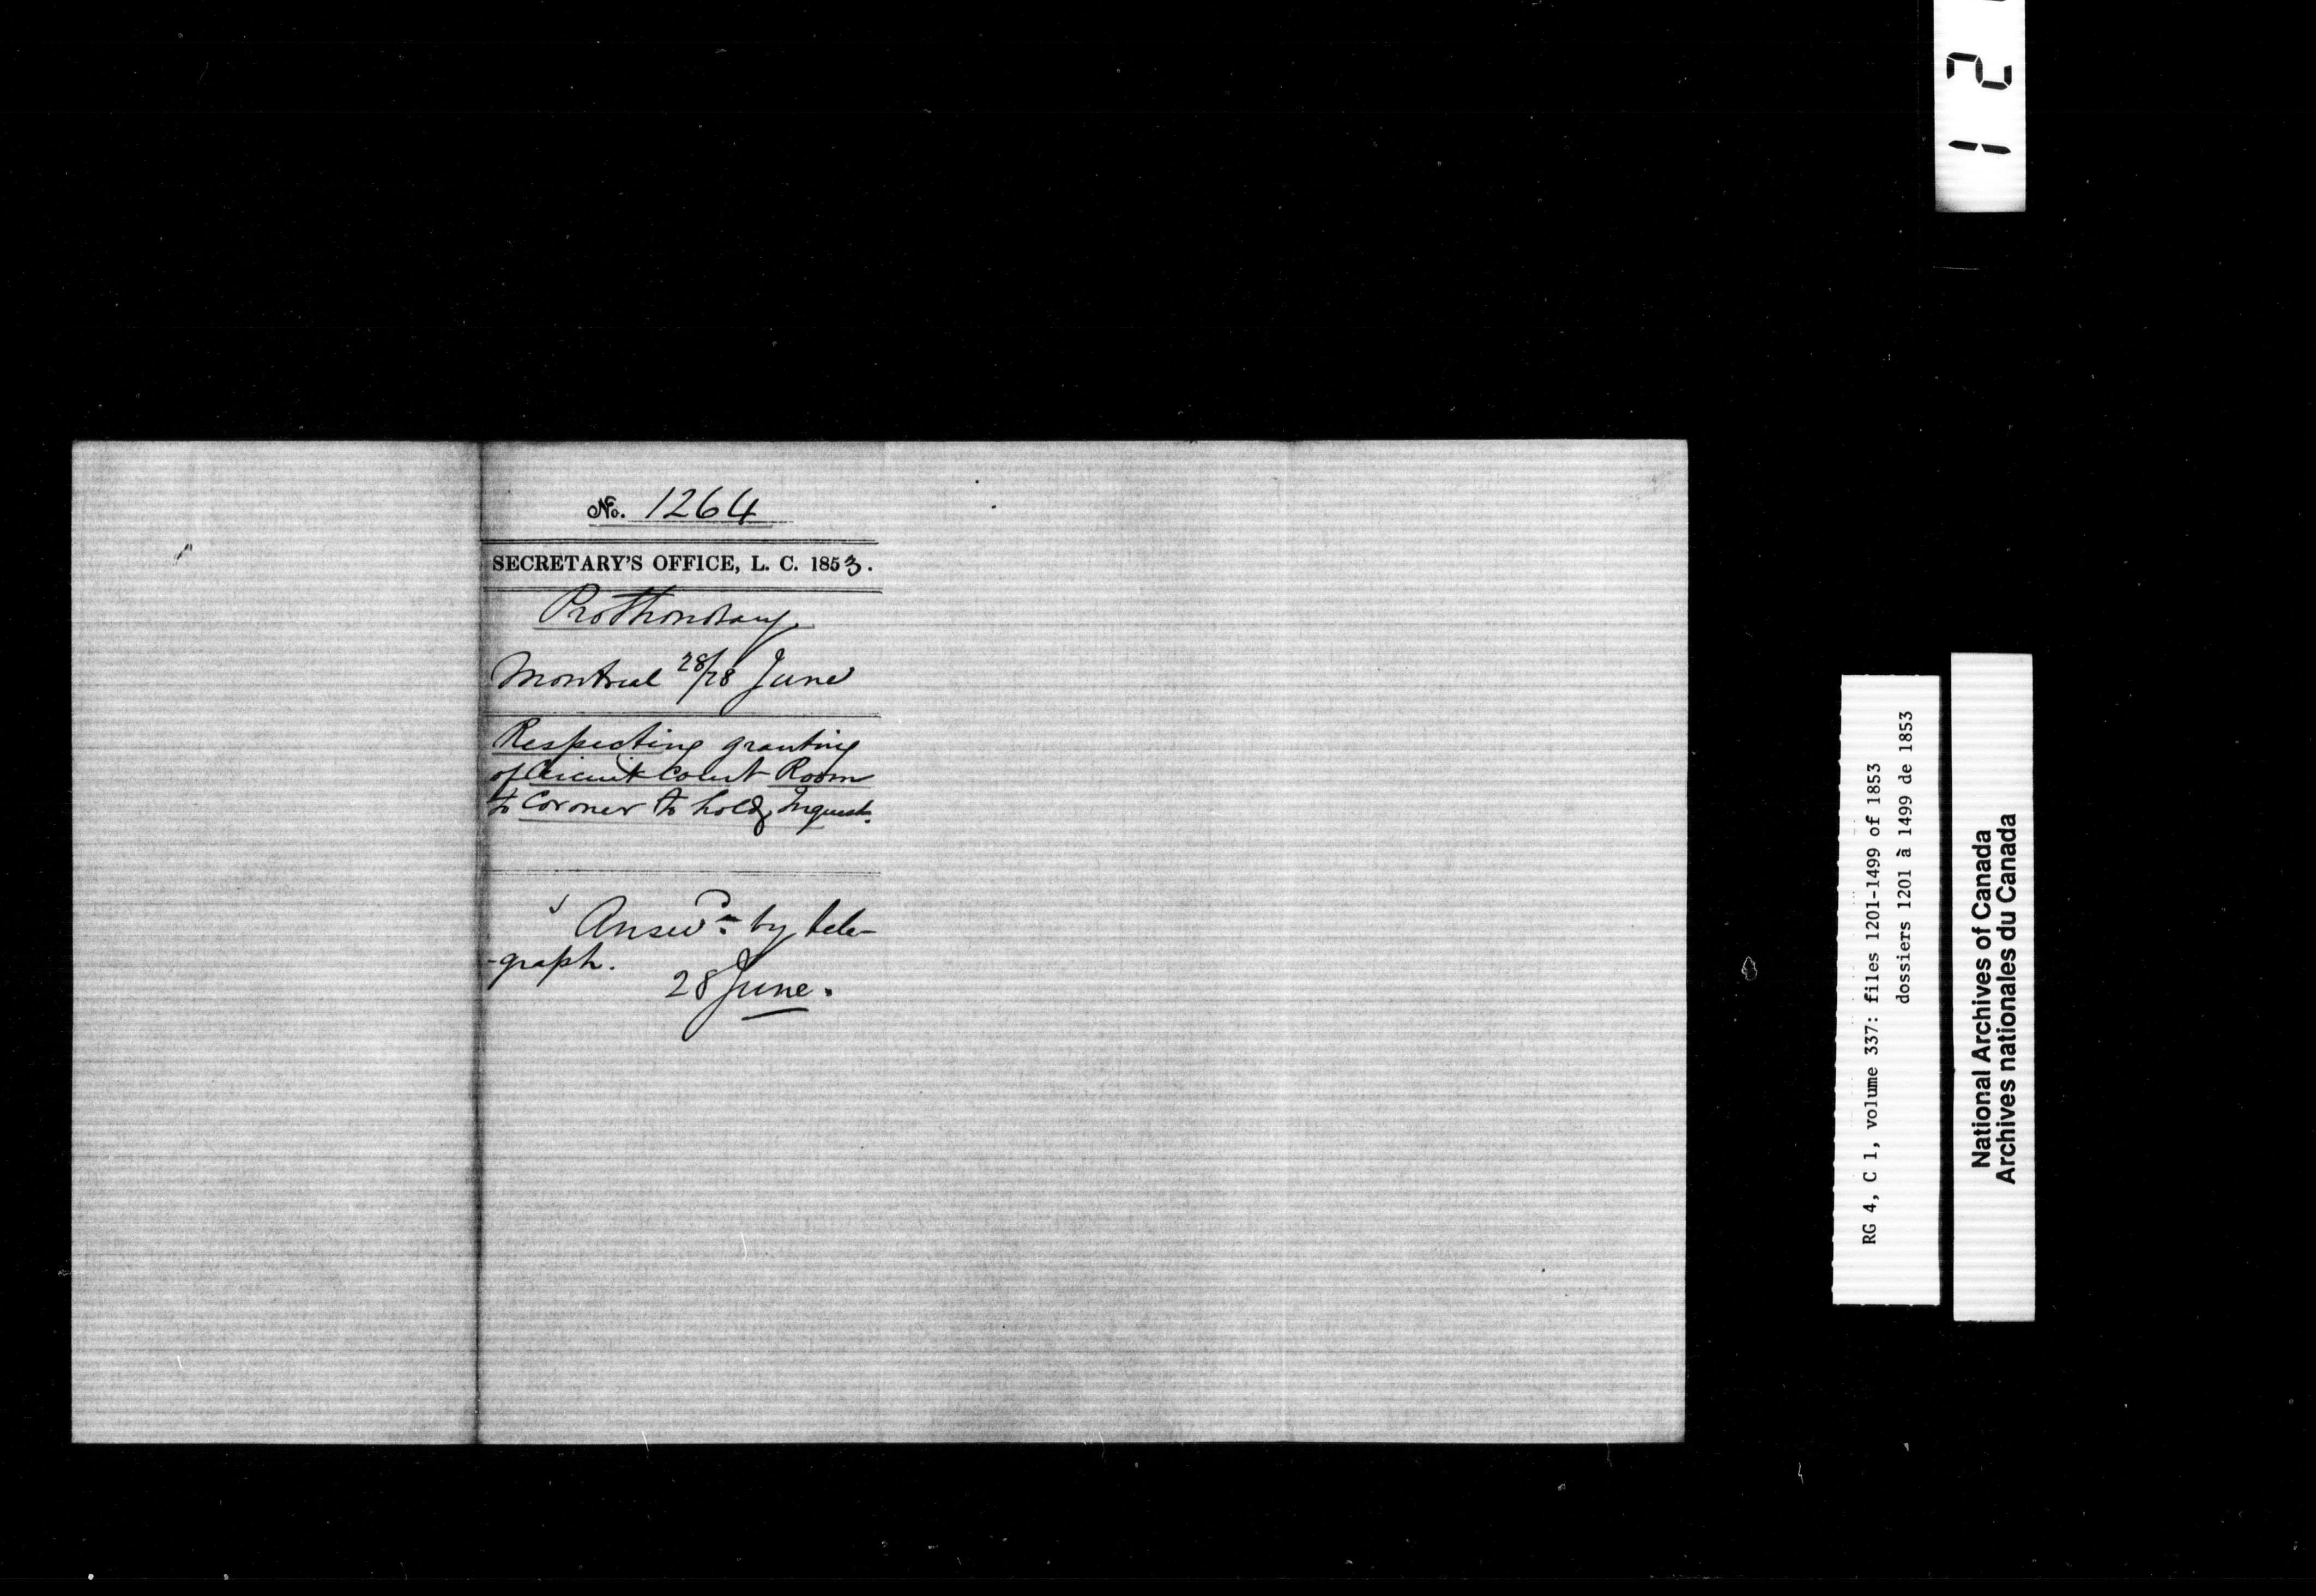 No. 1264
SECRETARY'S OFFICE, L. C. 1853.
Prothonotary
Montreal 28/28 June
Respecting granting
of Circuit Court Room
to Coroner to hold Inquest.
Answd. by tele-
-graph.
28 June.
12
RG 4, C 1, volume 337: files 1201-1499 of 1853
dossiers 1201 à 1499 de 1853
National Archives of Canada
Archives nationales du Canada